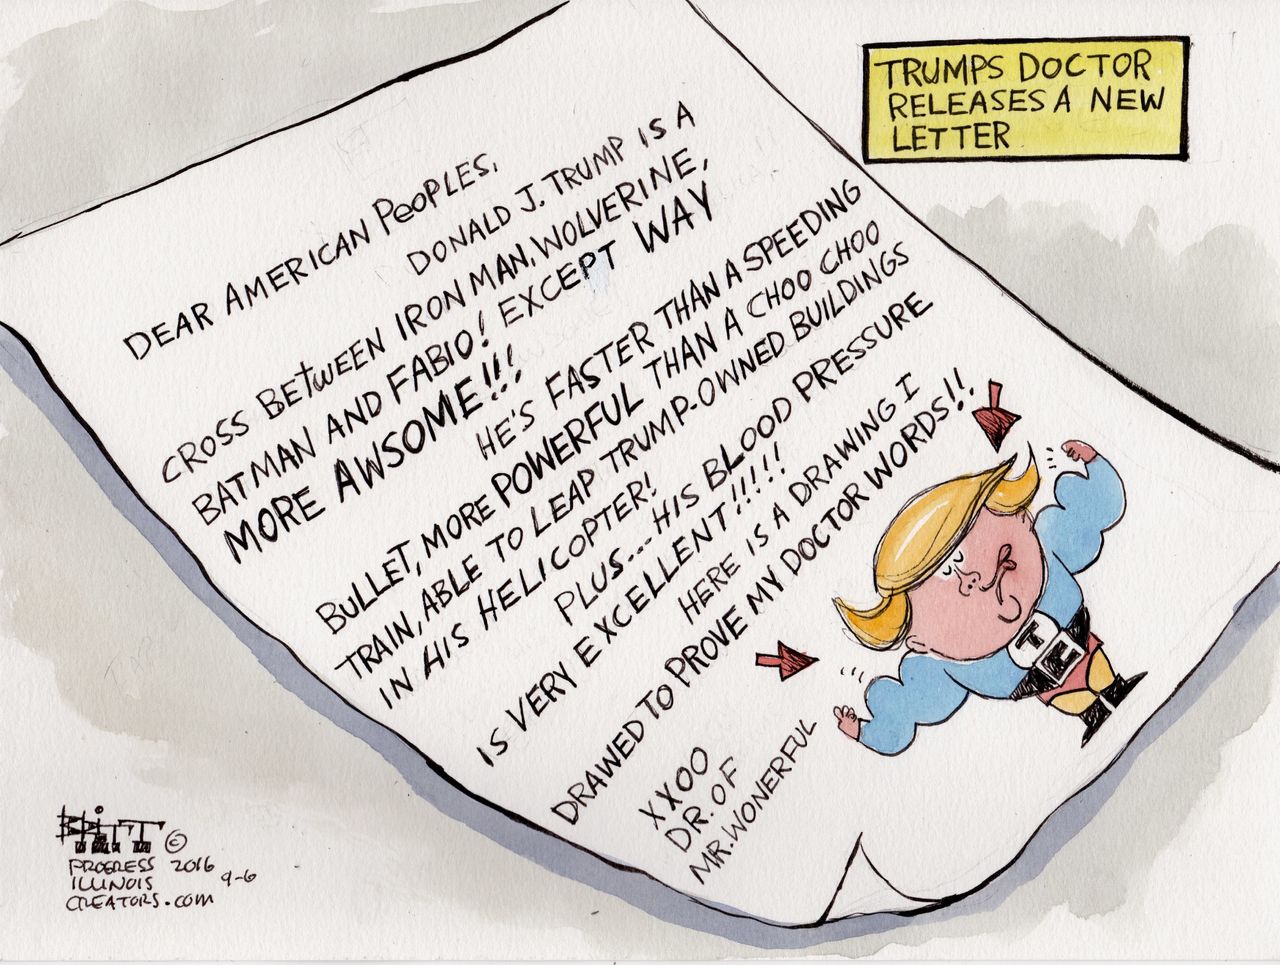 TRUMPS DOCTOR
RELEASES A NEW
LETTER
DEAR AMERICAN PEOPLES,
DONALD J. TRUMP IS A
CROSS BETWEEN IRON MAN, WOLVERINE,
BATMAN AND FABIO! EXCEPT WAY
MORE AWSOME!!!
HE'S FASTER THAN A SPEEDING
BULLET, MORE POWERFUL THAN A CHOO CHOO
TRAIN, ABLE TO LEAP TRUMP-OWNED BUILDINGS
IN HIS HELICOPTER!
PLUS... HIS BLOOD PRESSURE
IS VERY EXCELLENT!!!!!
HERE IS A DRAWING I
DRAWED TO PROVE MY DOCTOR WORDS!!
XXOO
DR. OF
MR. WONERFUL
T
BRITT ©
PROGRESS 2016
ILLINOIS 9-6
CREATORS.COM